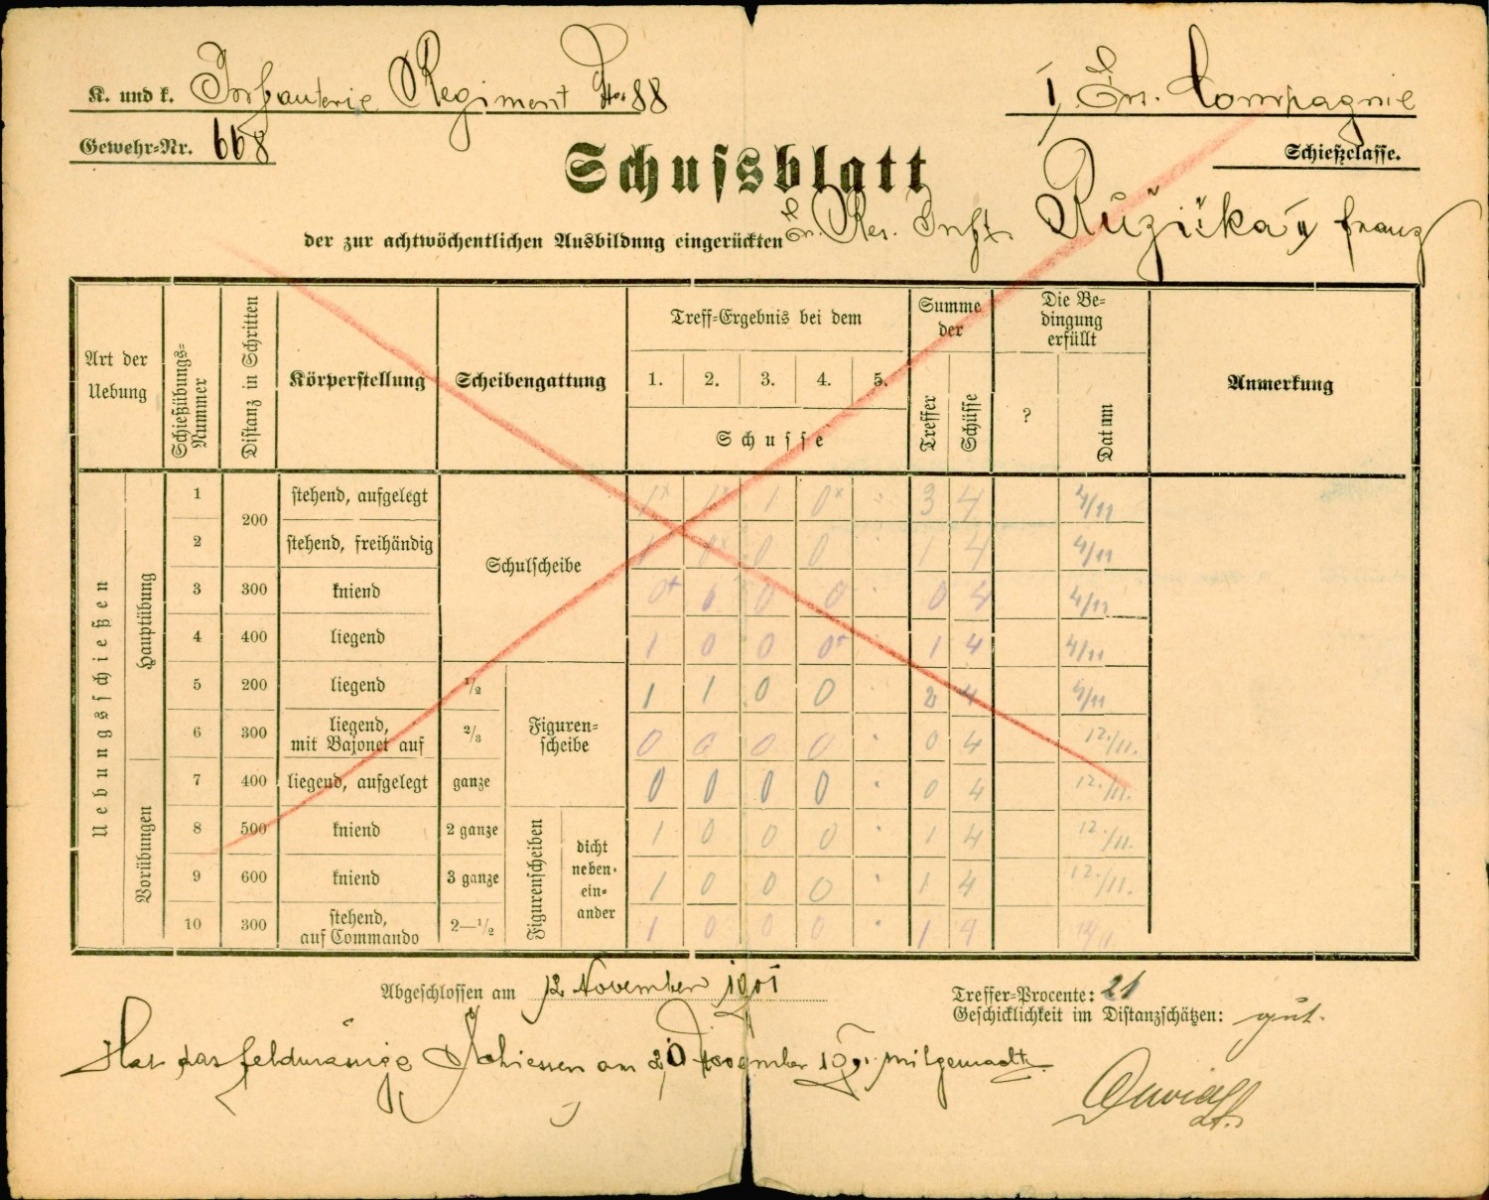 K. und k. Infanterie Regiment Nr. 88
1, Ers. Compagnie
Gewehr-Nr. 668
Schießclasse.
Schussblatt
der zur achtwöchentlichen Ausbildung eingerückten Ers. Res. Inft. Růžička Franz
Art der Uebung
Schießübungs-Nummer
Distanz in Schritten
Körperstellung
Scheibengattung
Treff-Ergebnis bei dem
1. 2. 3. 4. 5.
Schusse
Summe der
Treffer
Schüsse
Die Bedingung erfüllt
?
Datum
Anmerkung
Uebungsschießen
Hauptübung
Vorübungen
Schulscheibe
Figurenscheibe
Figurenscheiben
dicht neben-einander
1 200 stehend, aufgelegt 1 1 1 0 3 4 4/11
2 stehend, freihändig 1 0 0 0 1 4 4/11
3 300 kniend 0 0 0 0 0 4 4/11
4 400 liegend 1 0 0 0 1 4 4/11
5 200 liegend 1/2 1 1 0 0 2 4 4/11
6 300 liegend, mit Bajonet auf 2/3 0 0 0 0 0 4 12./11.
7 400 liegend, aufgelegt ganze 0 0 0 0 0 4 12./11.
8 500 kniend 2 ganze 1 0 0 0 1 4 12./11.
9 600 kniend 3 ganze 1 0 0 0 1 4 12./11.
10 300 stehend, auf Commando 2—1/2 1 0 0 0 1 4 12/11.
Abgeschlossen am 12 November 1901
Treffer-Procente: 21
Geschicklichkeit im Distanzschätzen: gut.
Hat das feldmässige Schiessen am 20 November 1901 mitgemacht.